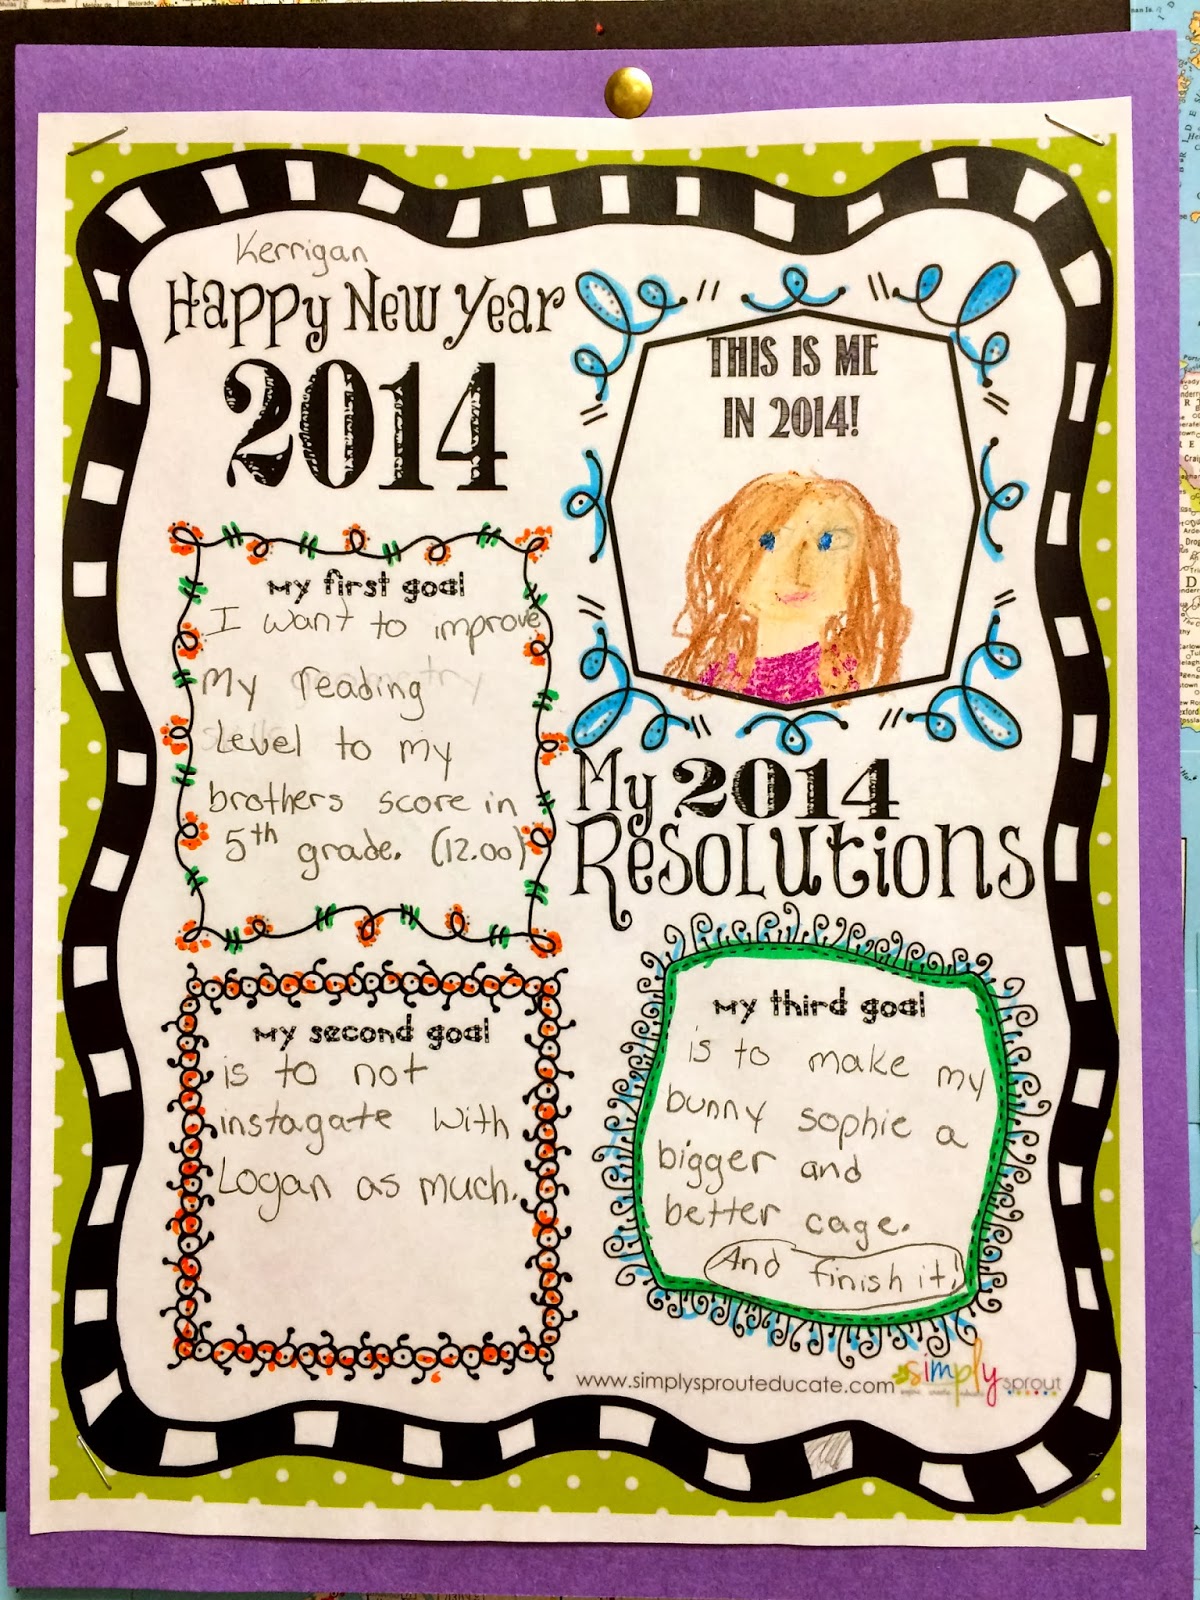 Kerrigan
Happy New Year
2014
THIS IS ME
IN 2014!
My first goal
I want to improve
My reading
Level to my
brothers score in
5th grade. (12.00)
My 2014
Resolutions
My second goal
is to not
instagate with
Logan as much.
My third goal
is to make my
bunny sophie a
bigger and
better cage.
And finish it!
www.simplysprouteducate.com
simply sprout